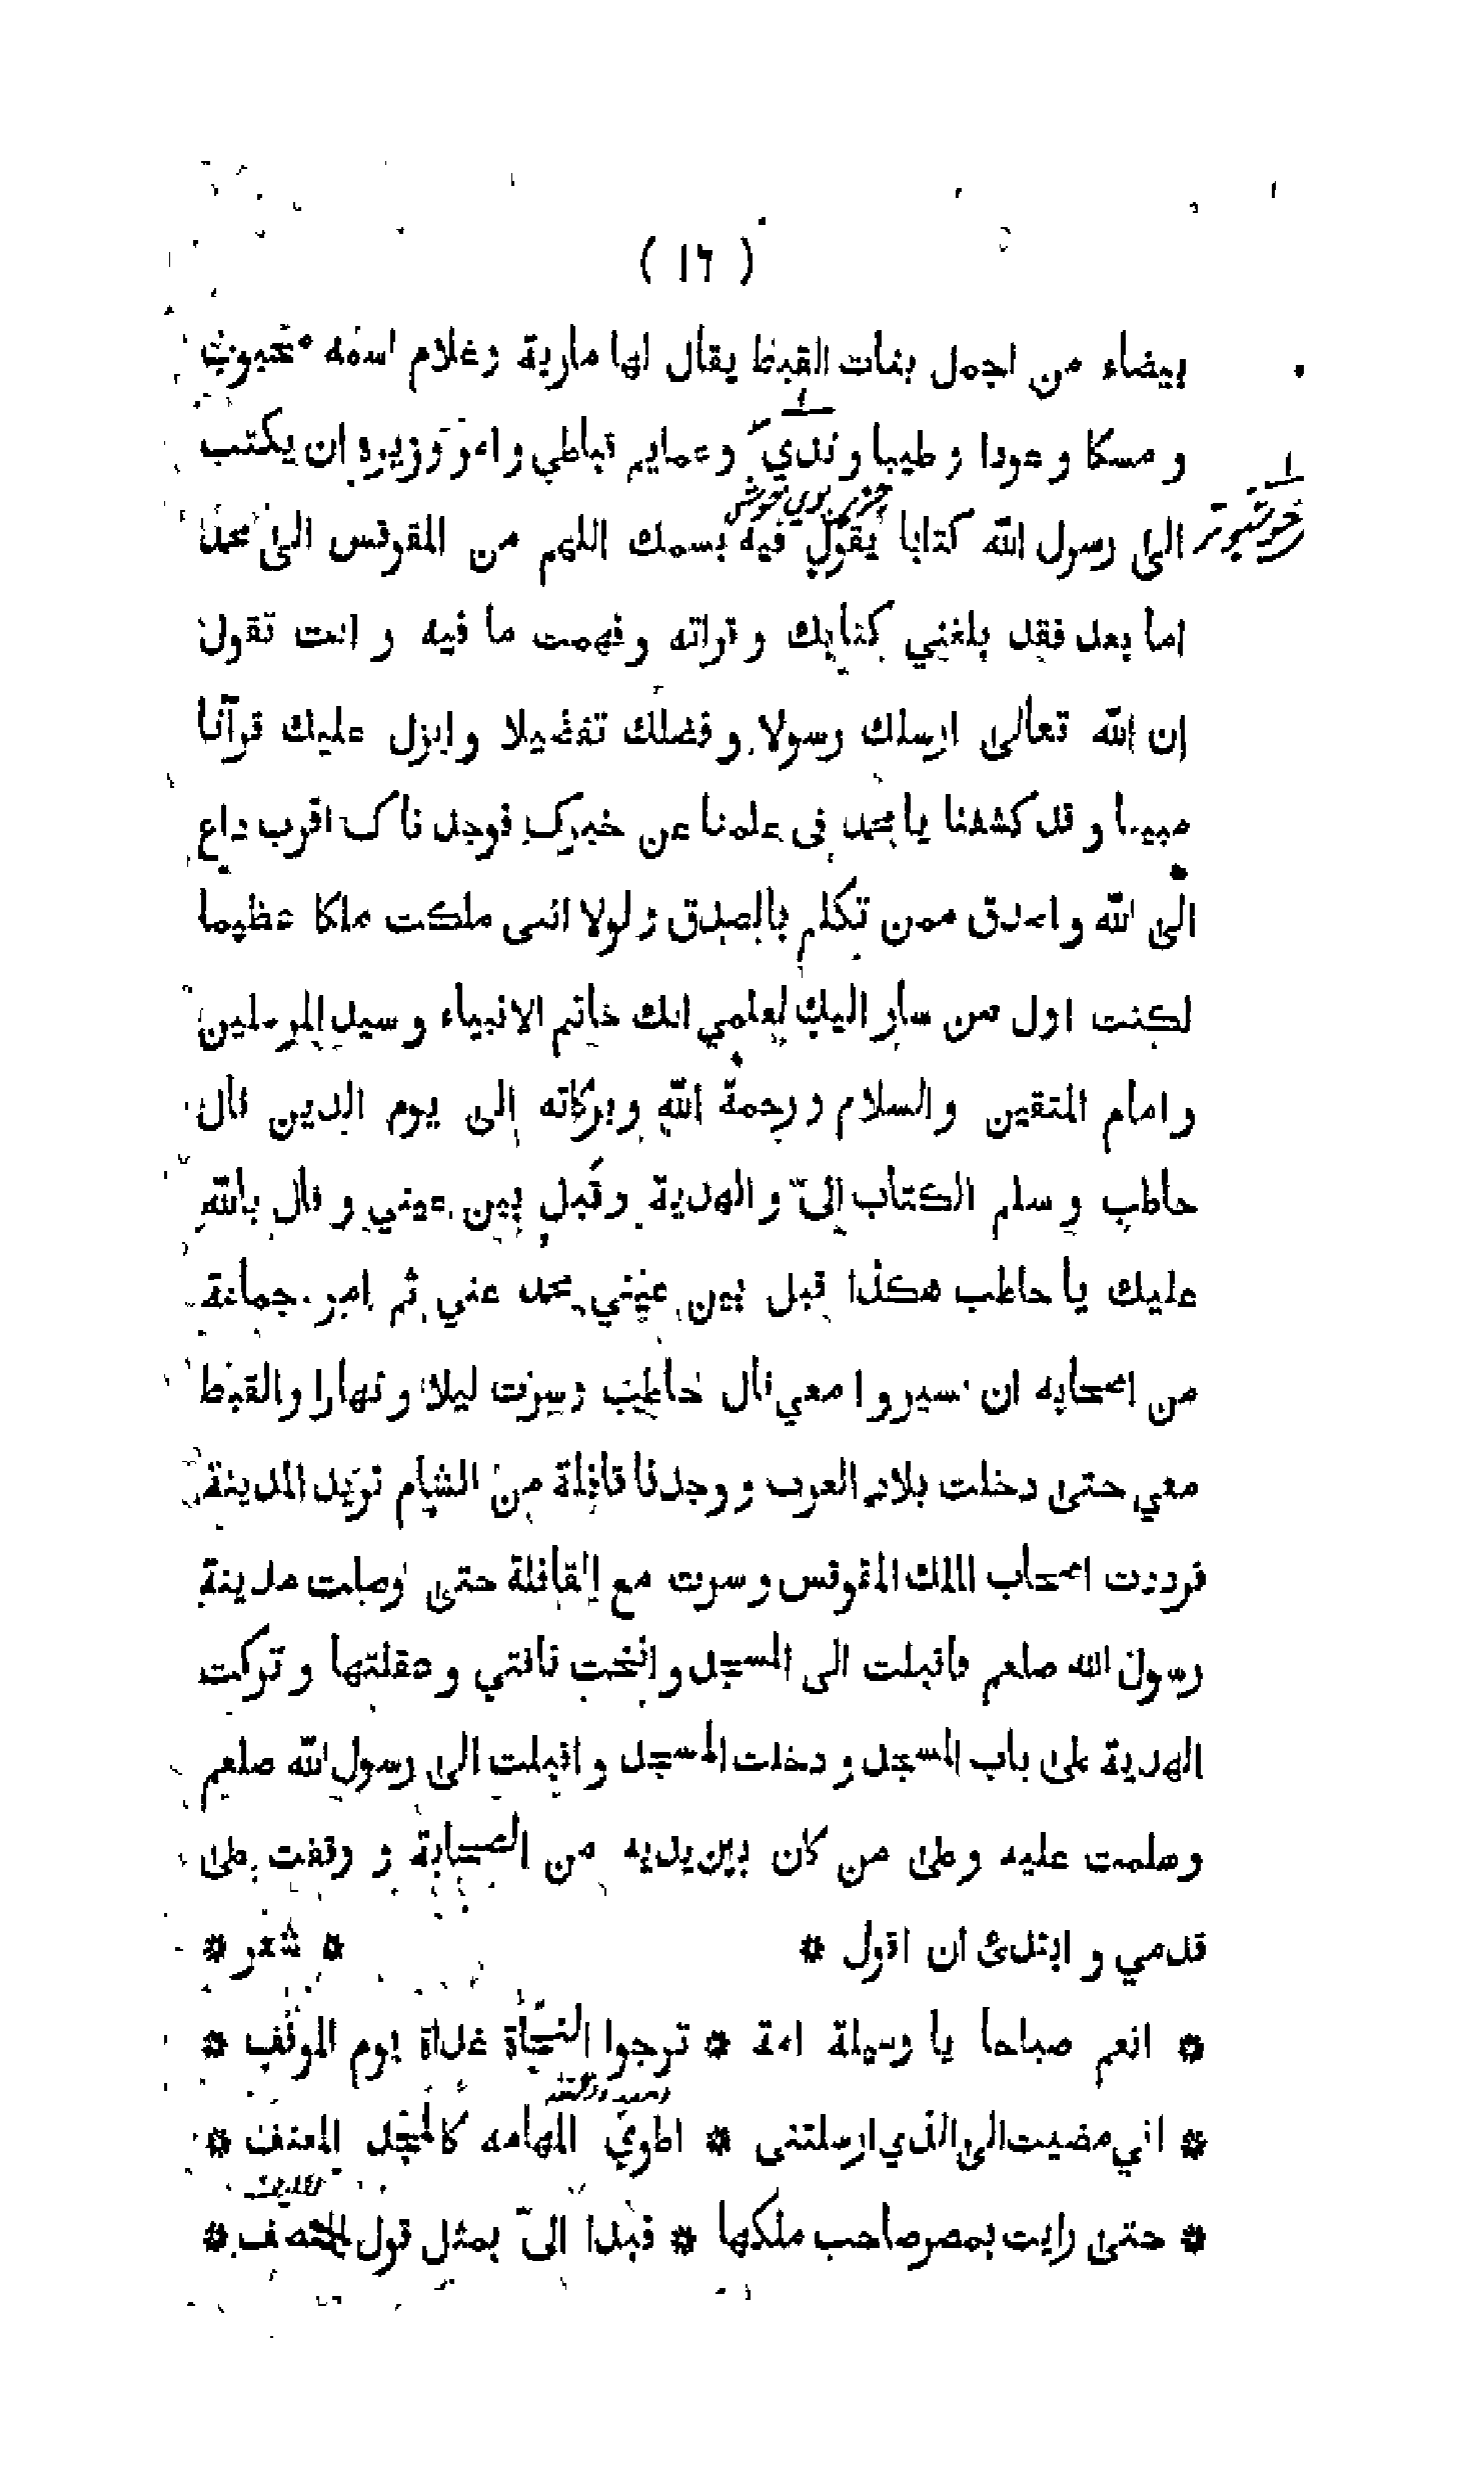 ( ١٦ )
بيضاء من اجمل بنات القبط يقال لها مارية وغلام اسمه محبوب
و مسكا و عودا و طيبا و ندي و عمايم قباطي و امر وزيره ان يكتب
الى رسول الله كتابا يقول فيه بسمك اللهم من المقوقس الى محمد
اما بعد فقد بلغني كتابك و قراته و فهمت ما فيه و انت تقول
ان الله تعالى ارسلك رسولا و فضلك تفضيلا و انزل عليك قرآنا
مبينا و قد كشفنا يا محمد في علمنا عن خبرك فوجدناك اقرب داع
الى الله و اصدق ممن تكلم بالصدق و لولا انى ملكت ملكا عظيما
لكنت اول من سار اليك لعلمي انك خاتم الانبياء و سيد المرسلين
و امام المتقين والسلام و رحمة الله وبركاته الى يوم الدين قال
حاطب و سلم الكتاب اليّ و الهدية و قبل بين عيني و قال بالله
عليك يا حاطب هكذا قبل بين عيني محمد عني ثم امر جماعة
من اصحابه ان يسيروا معي قال حاطب وسرت ليلا و نهارا والقبط
معي حتى دخلت بلاد العرب و وجدنا قافلة من الشام تريد المدينة
فرددت اصحاب الملك المقوقس و سرت مع القافلة حتى وصلت مدينة
رسول الله صلعم فاقبلت الى المسجد و انخت ناقتي و عقلتها و تركت
الهدية على باب المسجد و دخلت المسجد و اقبلت الى رسول الله صلعم
وسلمت عليه و على من كان بين يديه من الصحابة و وقفت على
قدمي و ابتدئ ان اقول * * شعر *
* انعم صباحا يا وسيلة امة * ترجوا النجاة غداة يوم الموقف *
* اني مضيت الى الذي ارسلتنى * اطوي المهامه كالمجد المعنف *
* حتى رايت بمصر صاحب ملكها * فبدا اليّ بمثل قول المنصف *